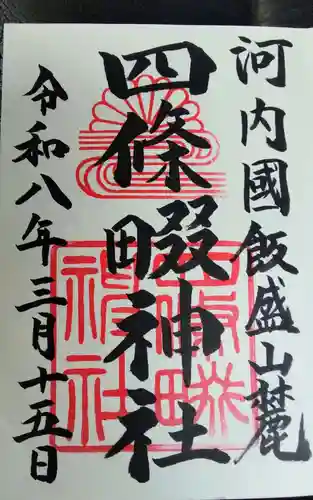 河内國飯盛山麓
四條畷神社
令和八年三月十五日
四條畷
神社